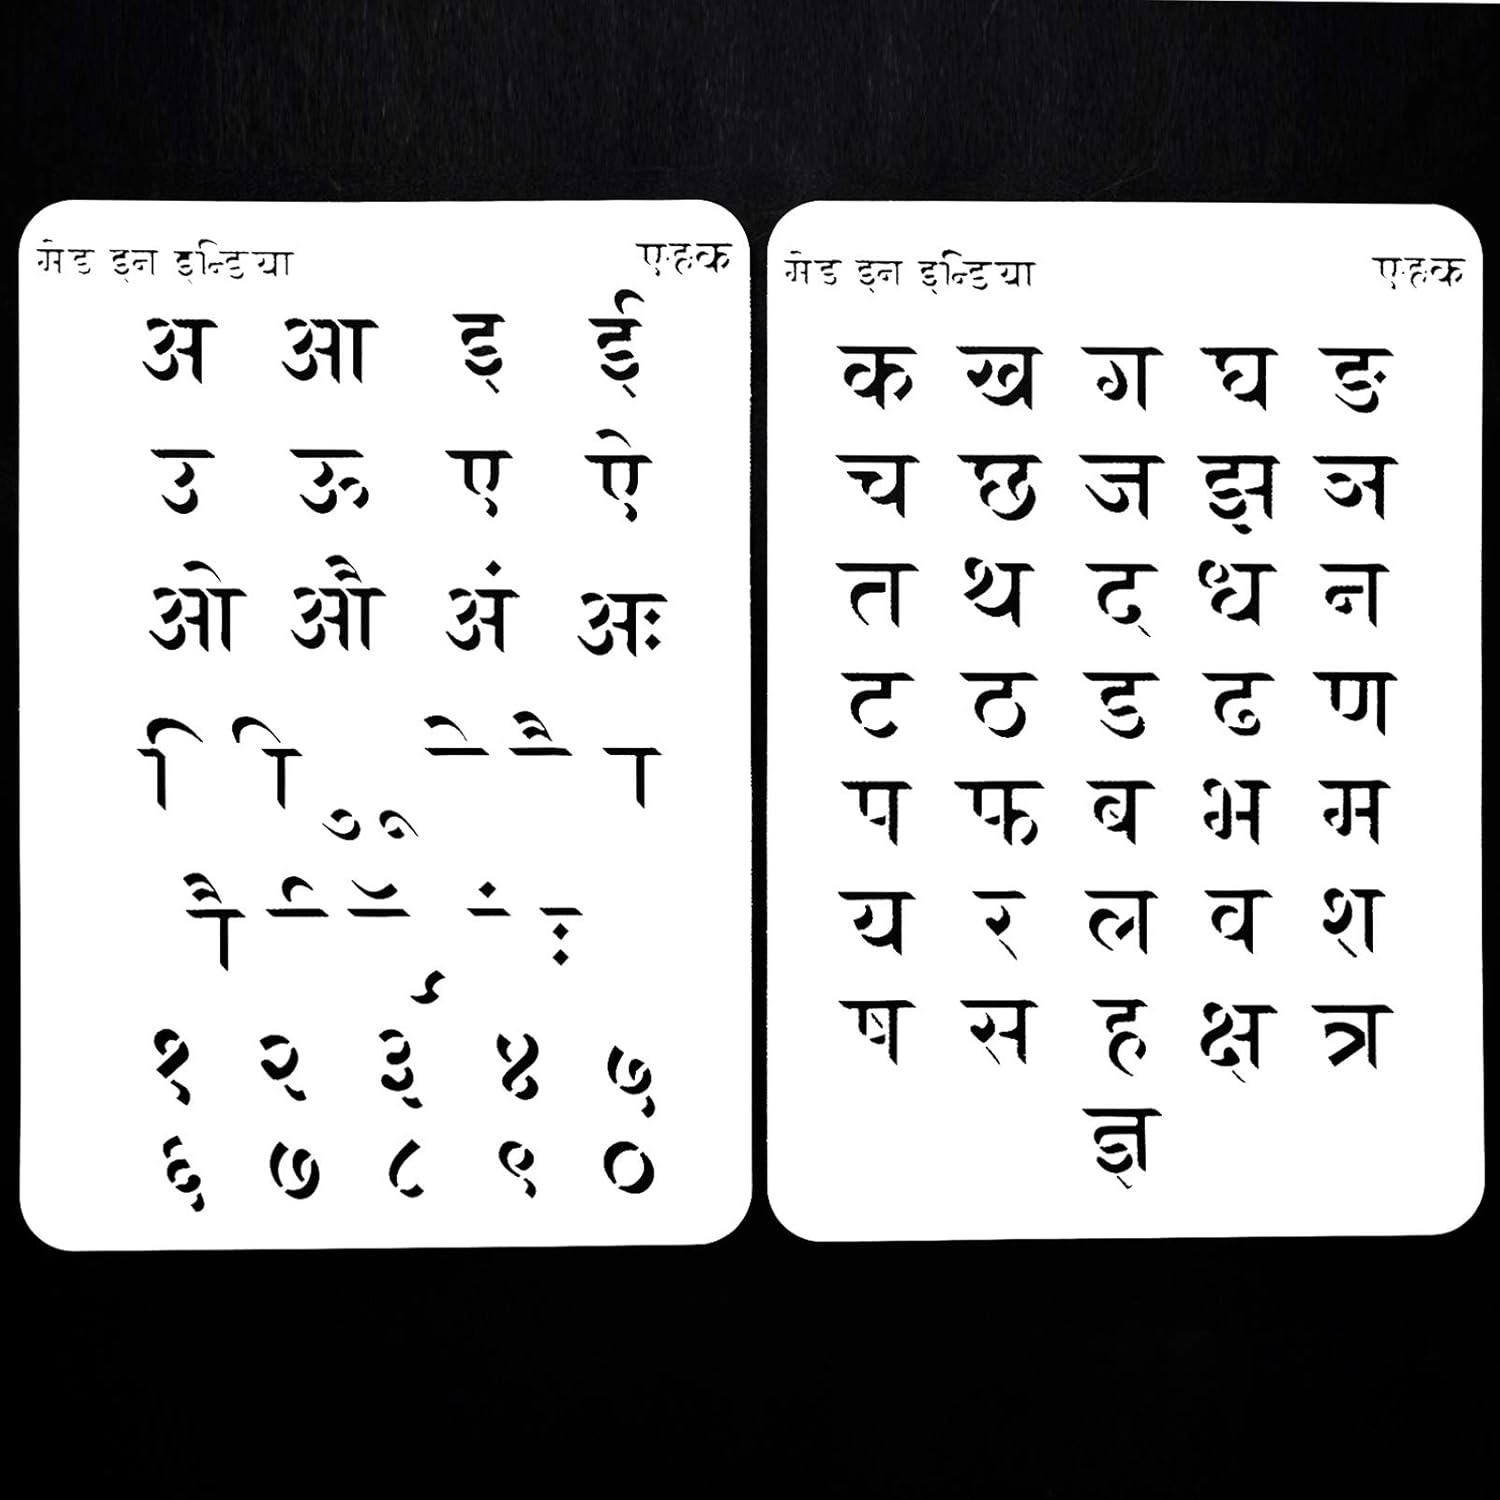 मेड इन इन्डिया एहक
अ आ इ ई
उ ऊ ए ऐ
ओ औ अं अः
ि ी ु ू े ै ा
ौ र्‍ ॅ ं ः ृ
१ २ ३ ४ ५
६ ७ ८ ९ ०
मेड इन इन्डिया एहक
क ख ग घ ङ
च छ ज झ ञ
त थ द ध न
ट ठ ड ढ ण
प फ ब भ म
य र ल व श
ष स ह क्ष त्र
ज्ञ